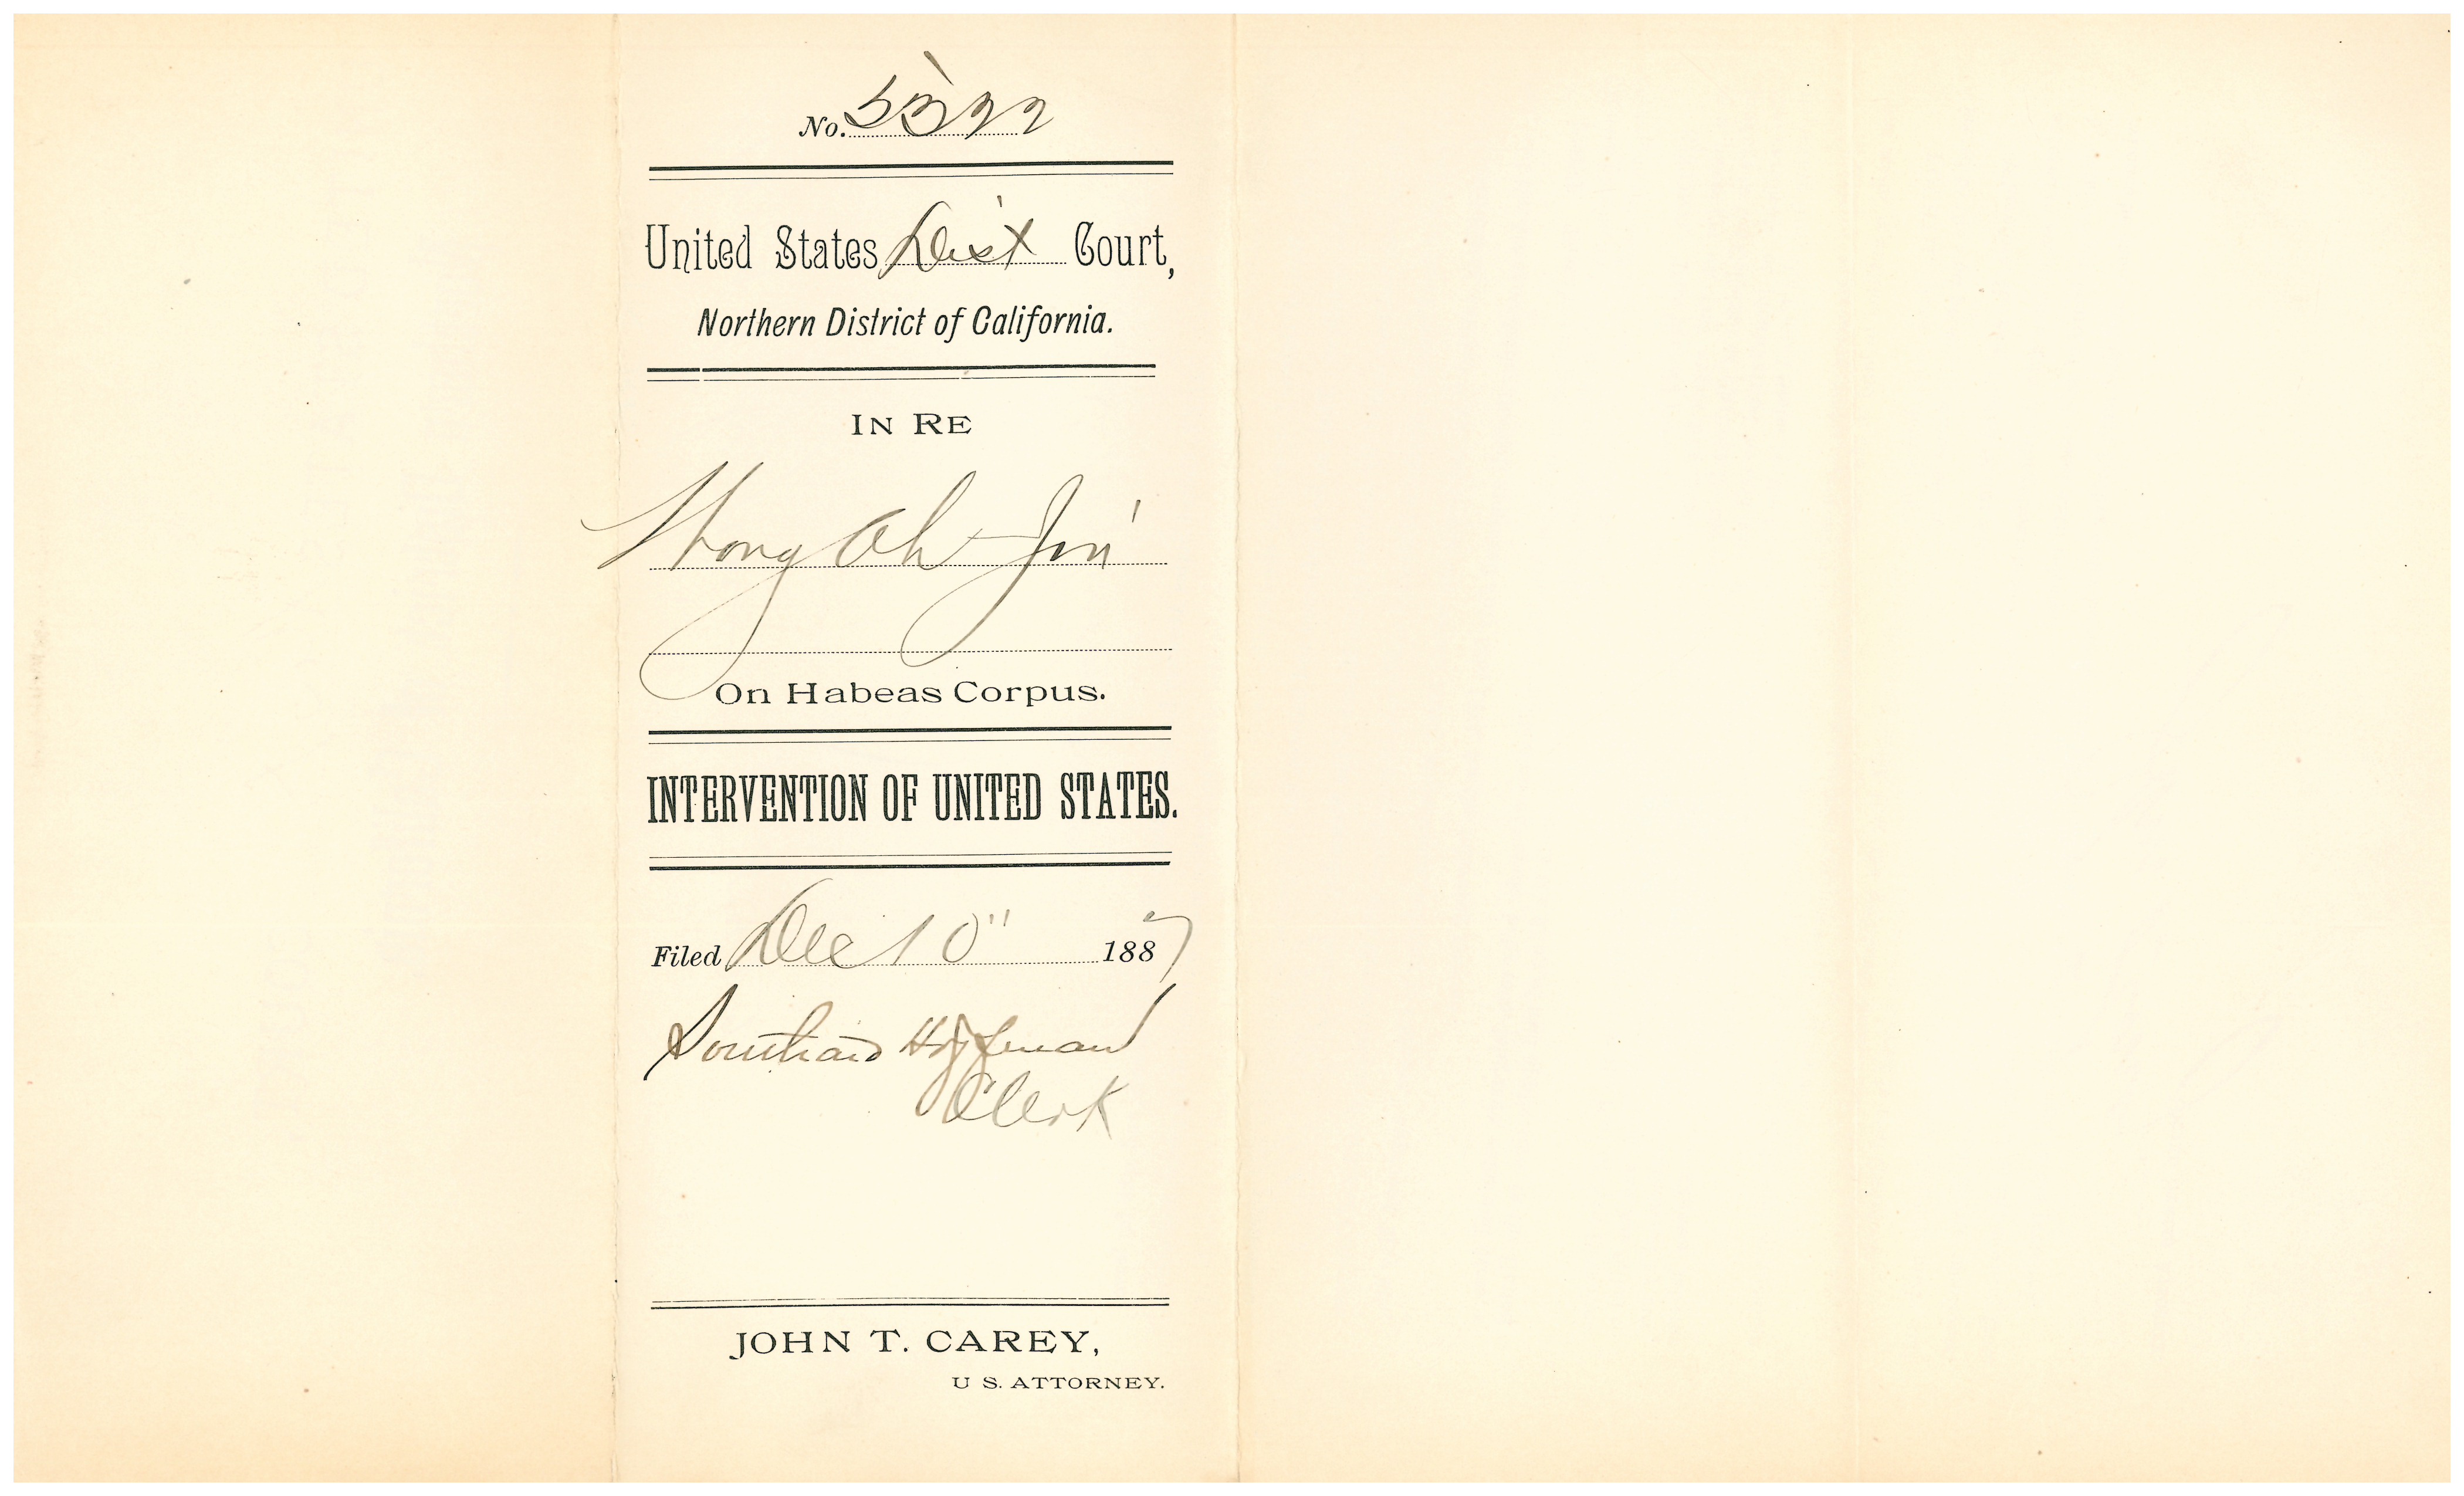 No.
United States Dist Court,
Northern District of California.
IN RE
Ah Jin
On Habeas Corpus.
INTERVENTION OF UNITED STATES.
Filed Dec 10" 1887
Southard Hoffman
Clerk
JOHN T. CAREY,
U S. ATTORNEY.